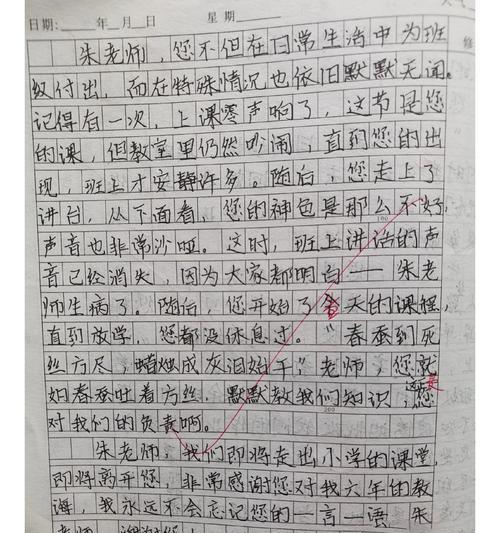 日期: 年 月 日 星期
朱老师，您不但在日常生活中为班
级付出，而在特殊情况也依旧默默无闻。
记得有一次，上课零声响了，这节是您
的课，但教室里仍然吵闹，直到您的出
现，班上才安静许多。随后，您走上了
讲台，从下面看，您的神色是那么不好，
100
声音也非常沙哑。这时，班上讲话的声
音已经消失，因为大家都明白——朱老
师生病了。随后，您开始了天的课程，
直到放学，您都没休息过。“春蚕到死
丝方尽，蜡烛成灰泪始干”老师，您就
如春蚕吐着方丝，默默教我们知识，这是您
200
对我们的负责啊。
朱老师，我们即将走出小学的课堂，
即将离开您，非常感谢您对我六年的教
诲，我永远不会忘记您的一言一语 朱
老师，谢谢您